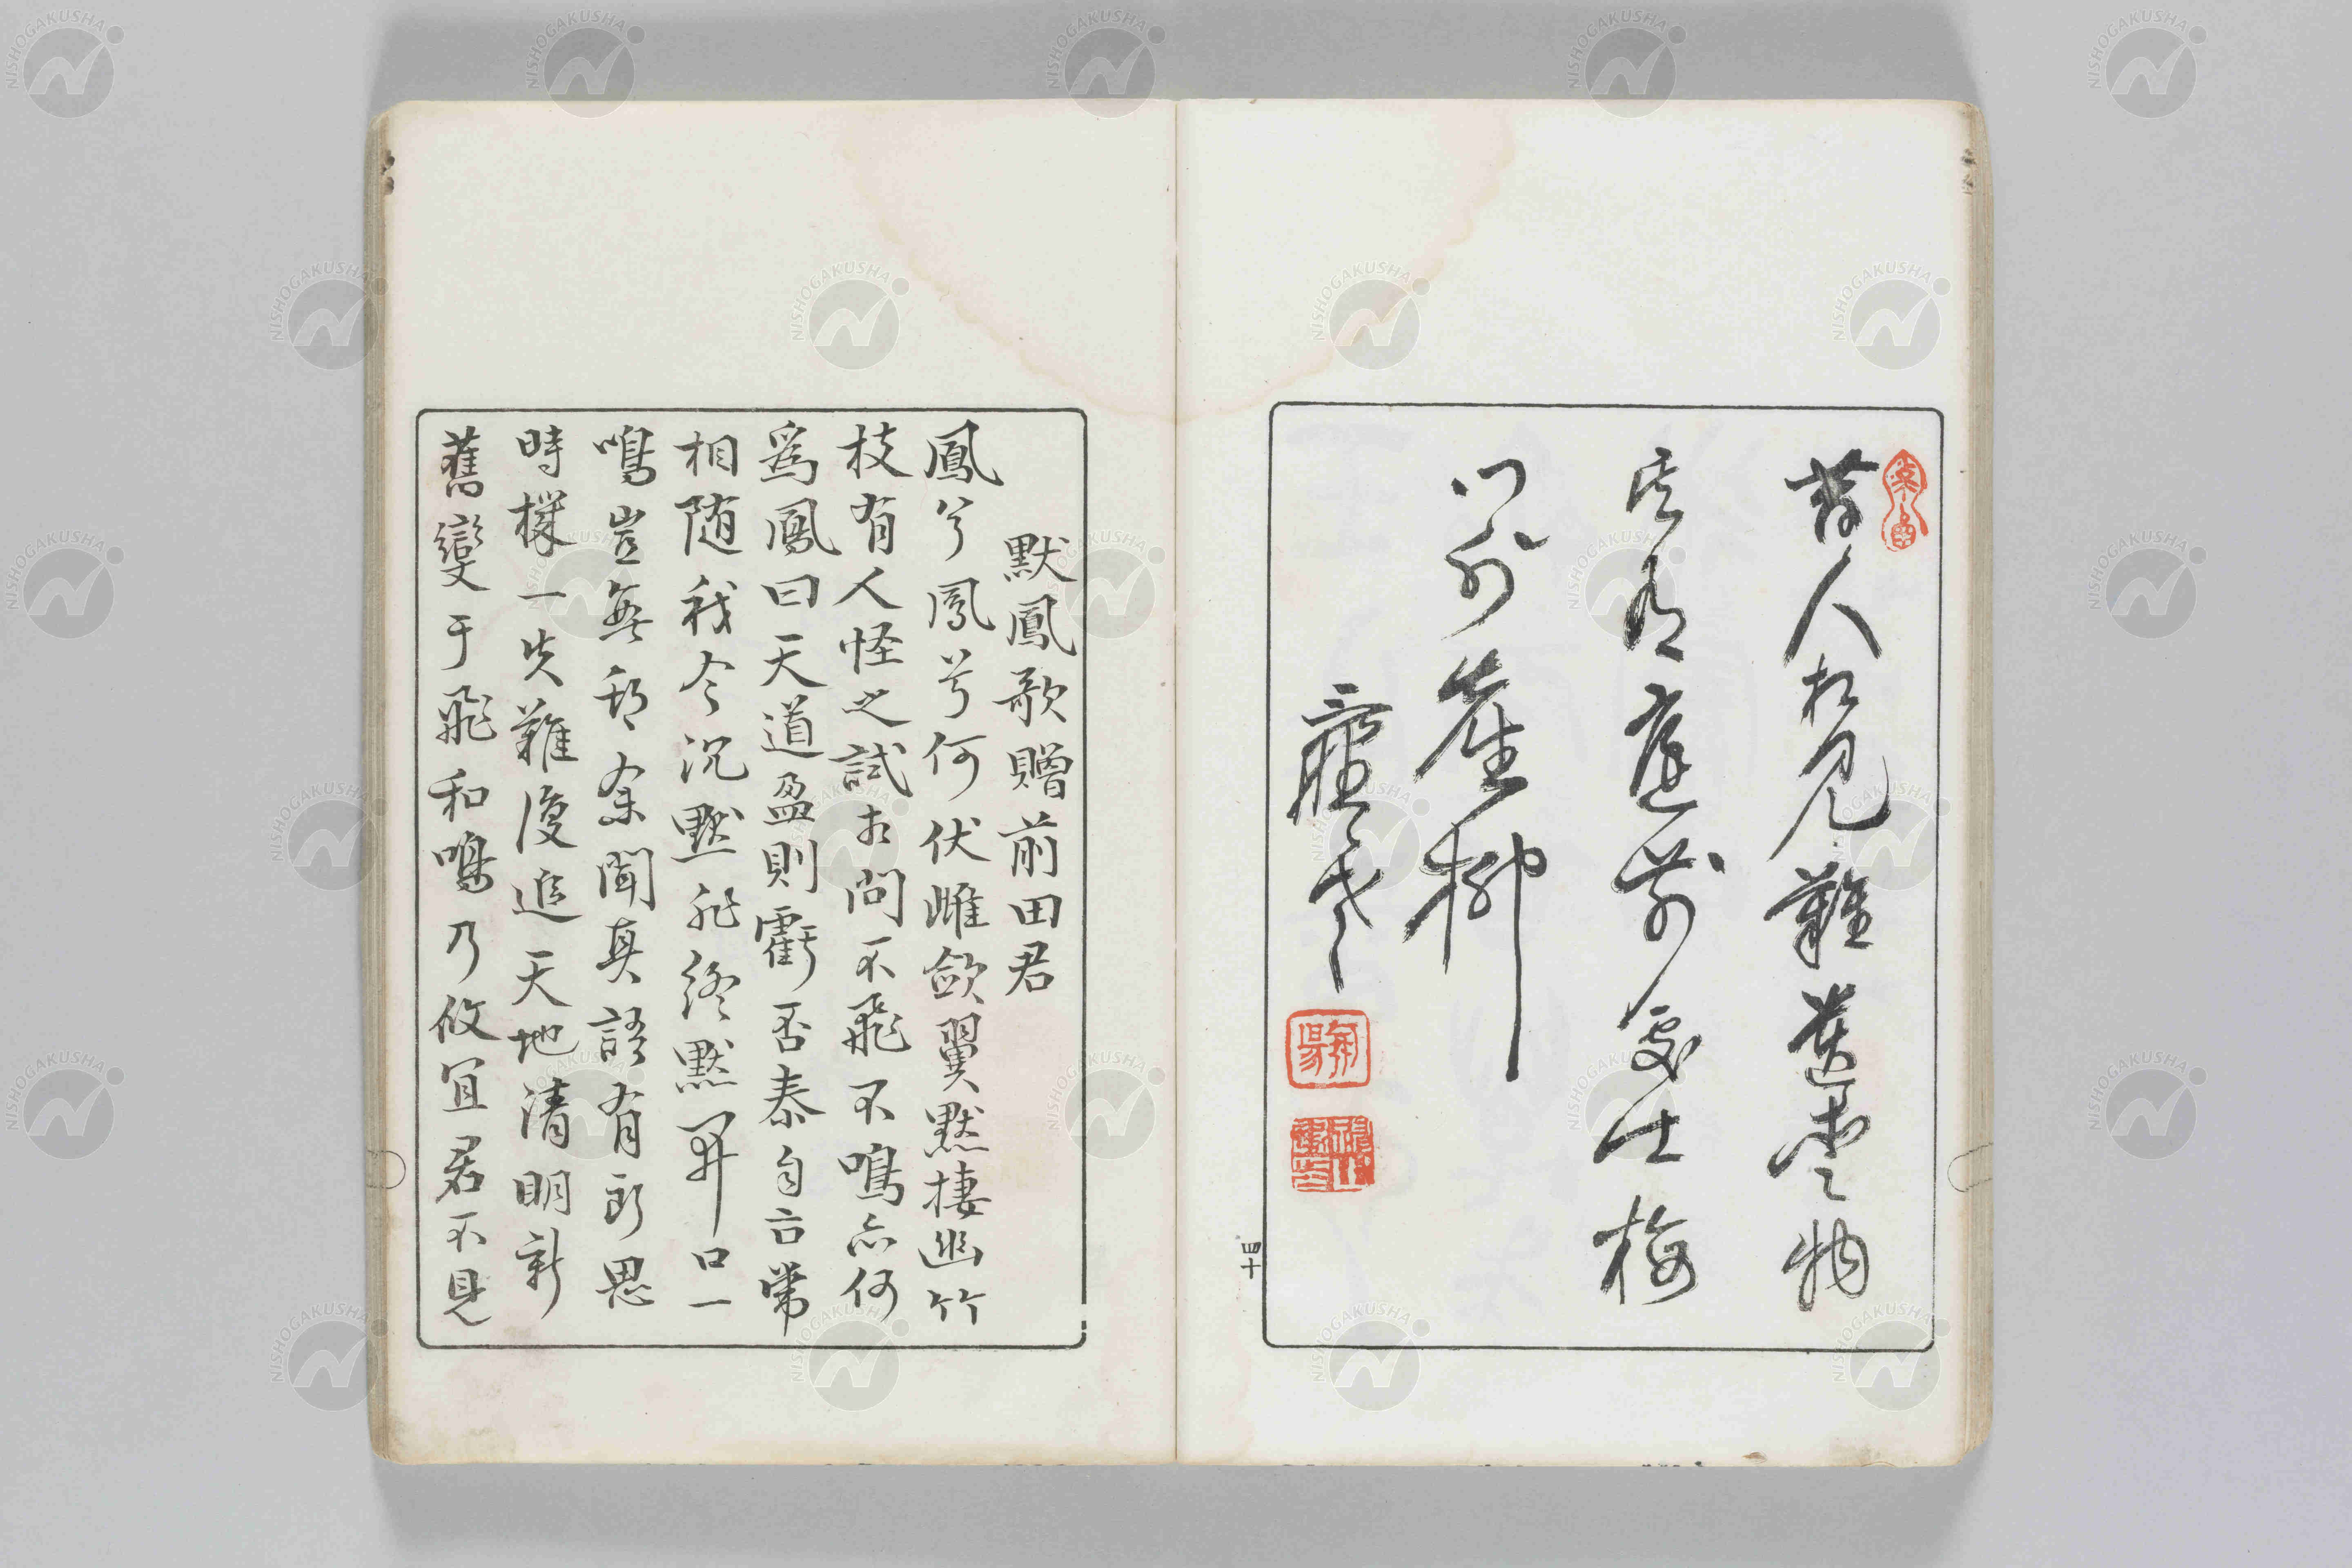 昔人相見難遺愛物
只有庭前處士梅
門外先生柳
四十
默鳳歌贈前田君
鳳兮鳳兮何伏雌斂翼默棲幽竹
枝有人怪之試相問不飛不鳴亦何
爲鳳曰天道盈則虧否泰自古常
相随我今沉默非終默開口一
鳴豈無期余聞其語有所思
時機一失難復追天地清明新
舊變于飛和鳴乃攸宜君不見
NISHOGAKUSHA